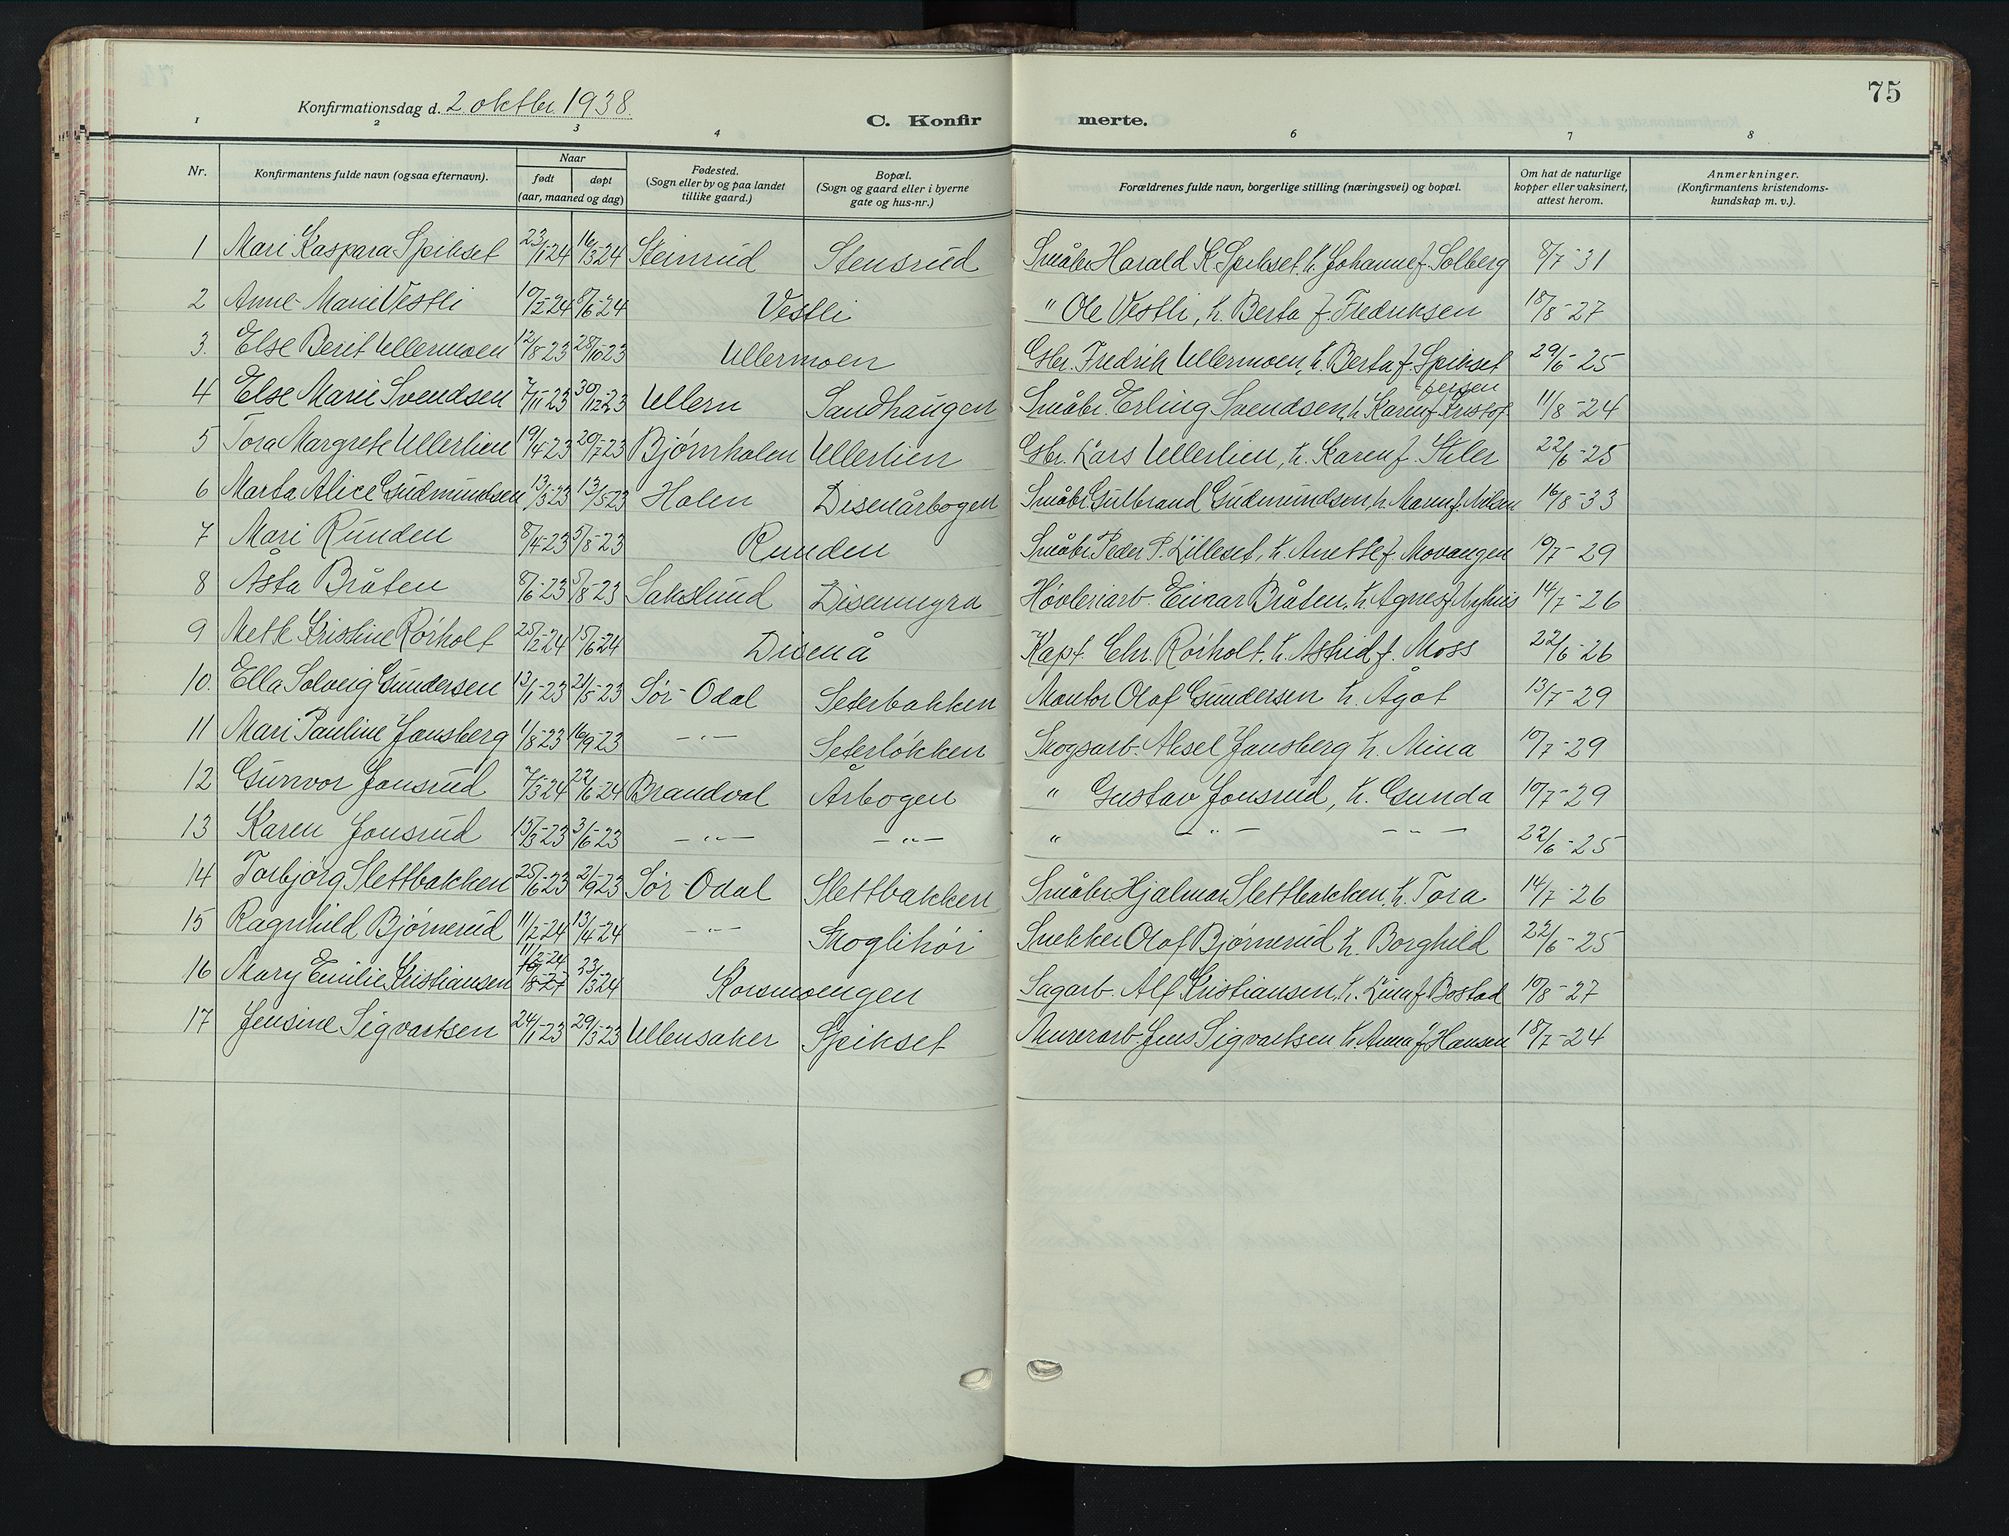 75
Konfirmationsdag d. 2. oktbr. 1938.
C. Konfir merte.
1 2 3 4 6 7 8
Nr. Konfirmantens fulde navn (ogsaa efternavn). Naar født døpt (aar, maaned og dag) Fødested. (Sogn eller by og paa landet tillike gaard.) Bopæl. (Sogn og gaard eller i byerne gate og hus-nr.) Forældrenes fulde navn, borgerlige stilling (næringsvei) og bopæl. Om hat de naturlige kopper eller vaksinert, attest herom. Anmerkninger. (Konfirmantens kristendoms-kundskap m. v.).
1 Mari Kaspara Spikset 23/1-24 16/3-24 Steinrud Stensrud Småbr. Harald K. Spikset, h. Johanne f. Solberg 8/7-31
2 Anne-Marie Vestli 10/2-24 8/6-24 Vestli " Ole Vestli, h. Berta f. Fredriksen 18/8-27
3. Else Berit Ullermoen 12/8-23 28/10-23 Ullermoen Gbr. Fredrik Ullermoen, h. Berta f. Spikset 29/6-25
4 Else Marie Svendsen 7/11-23 30/12-23 Ullern Sandhaugen Småbr. Erling Svendsen, h. Karen f. Kristoffersen 11/8-24
5 Tora Margrete Ullerlien 19/4-23 29/7-23 Bjørnholen Ullerlien Gbr. Lars Ullerlien, h. Karen f. Skler 22/6-25
6 Marta Alice Gudmundsen 13/3-23 13/5-23 Holen Disenårbogen Småbr. Gulbrand Gudmundsen, h. Maren f. Nilsen 16/8-33
7 Mari Runden 8/4-23 5/8-23 Runden Småbr. Peder P. Lilleset, h. Anette f. Movangen 10/7-29
8 Åsta Bråten 8/6-23 5/8-23 Sakslund Disenengra Høvleriarb. Einar Bråten, h. Agnes f. Nyhus 14/7-26
9 Mette Kristine Rørholt 25/2-24 15/6-24 Disenå Kapt. Chr. Rørholt, h. Astrid f. Moss 22/6-26
10. Ella Solveig Gundersen 13/1-23 21/5-23 Sør-Odal Seterbakken Montør Olof Gundersen h. Ågot 13/7-29
11 Mari Pauline Jonsberg 1/8-23 16/9-23 -"- Seterløkken Skogsarb. Aksel Jonsberg h. Mina 10/7-29
12 Gunvor Jonsrud 7/3-24 22/6-24 Brandval Årbogen " Gustav Jonsrud, h. Gunda 10/7-29
13 Karen Jonsrud 15/3-23 3/6-23 -"- -"- " -"- -"- 22/6-25
14 Torbjørg Slettbakken 25/6-23 2/9-23 Sør-Odal Slettbakken Småbr. Hjalmar Slettbakken, h. Tora 14/7-26
15 Ragnhild Bjørnerud 11/2-24 13/4-24 -"- Skoglihøi Snekker Olaf Bjørnerud h. Borghild 22/6-25
16 Mary Emilie Kristiansen 11/2-24 10/8-27 23/3-24 Korsmoengen Sagarb. Alf Kristiansen, h. Linn f. Bostad 10/8-27
17 Jensine Sigvartsen 24/1-23 29/3-23 Ullensaker Spikset Murerarb. Jens Sigvartsen h. Anna f. Hansen 18/7-24